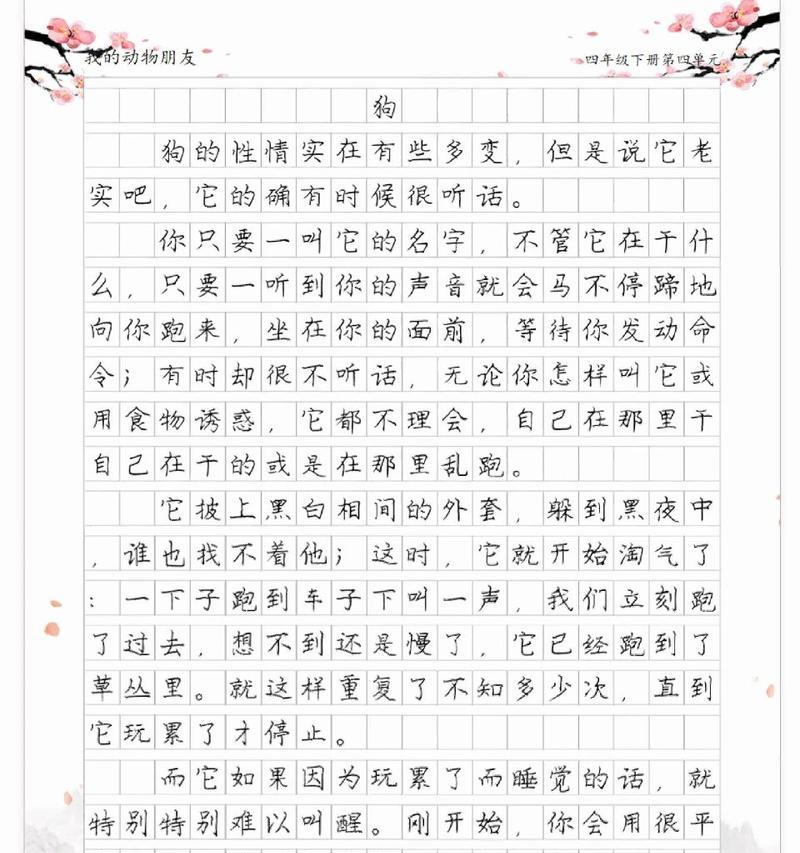 我的动物朋友
四年级下册第四单元
狗
狗的性情实在有些多变，但是说它老
实吧，它的确有时候很听话。
你只要一叫它的名字，不管它在干什
么，只要一听到你的声音就会马不停蹄地
向你跑来，坐在你的面前，等待你发动命
令；有时却很不听话，无论你怎样叫它或
用食物诱惑，它都不理会，自己在那里干
自己在干的或是在那里乱跑。
它披上黑白相间的外套，躲到黑夜中
，谁也找不着他；这时，它就开始淘气了
：一下子跑到车子下叫一声，我们立刻跑
了过去，想不到还是慢了，它已经跑到了
草丛里。就这样重复了不知多少次，直到
它玩累了才停止。
而它如果因为玩累了而睡觉的话，就
特别特别难以叫醒。刚开始，你会用很平